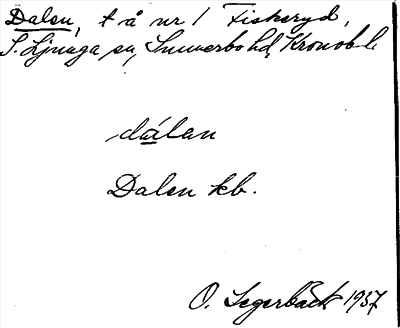 Dalen, t å nr 1 Fiskeryd,
S. Ljunga sn, Sunnerbo hd, Kronob. l.
dálan
Dalen kb.
O. Segerbäck 1937